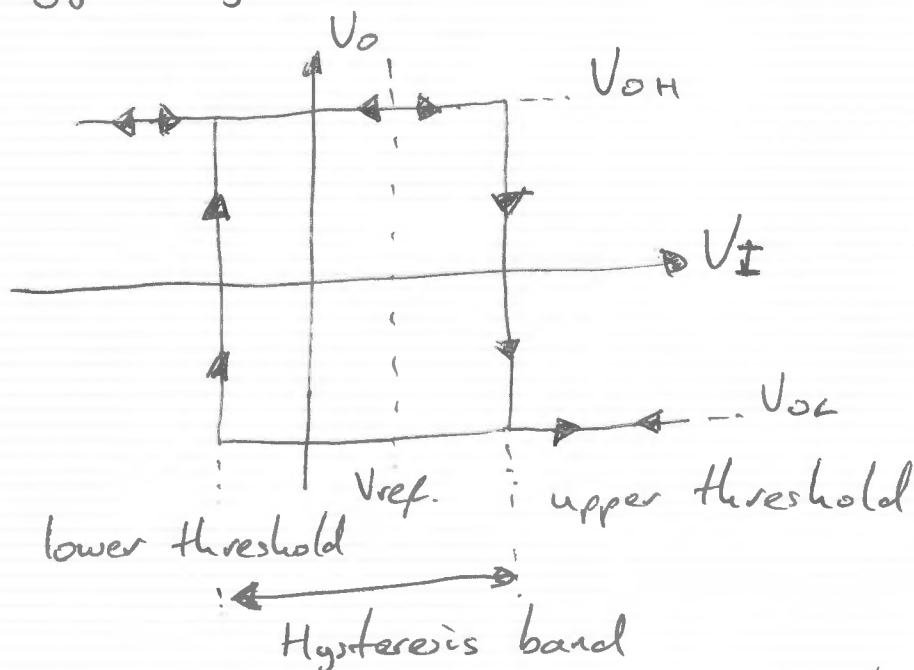 Vo
VOH
VI
VOL
Vref.
upper threshold
lower threshold
Hysteresis band